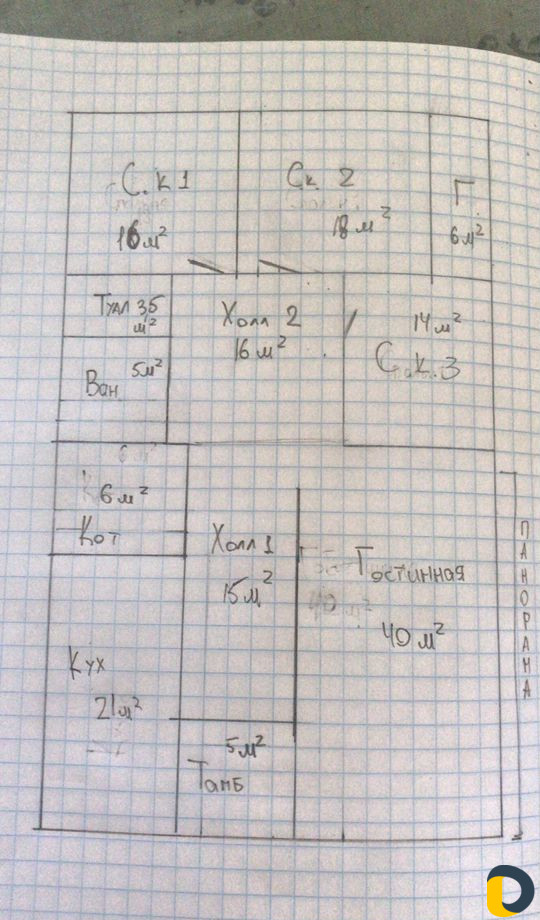 С.к 1
16 м²
Ск. 2
18 м²
Г.
6 м²
Туал 3,5
м²
5 м²
Ван
Холл 2
16 м²
14 м²
С.к.3
6 м²
Кот
Холл 1
15 м²
Гостинная
40 м²
ПАНОРАМА
Кух
21 м²
5 м²
Тамб